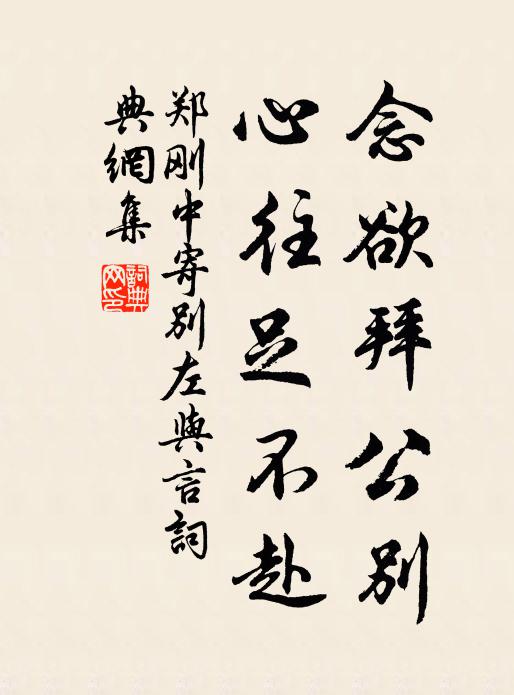 念欲拜公别
心往足不赴
郑刚中寄别左與言詞
典網集
詞典網印